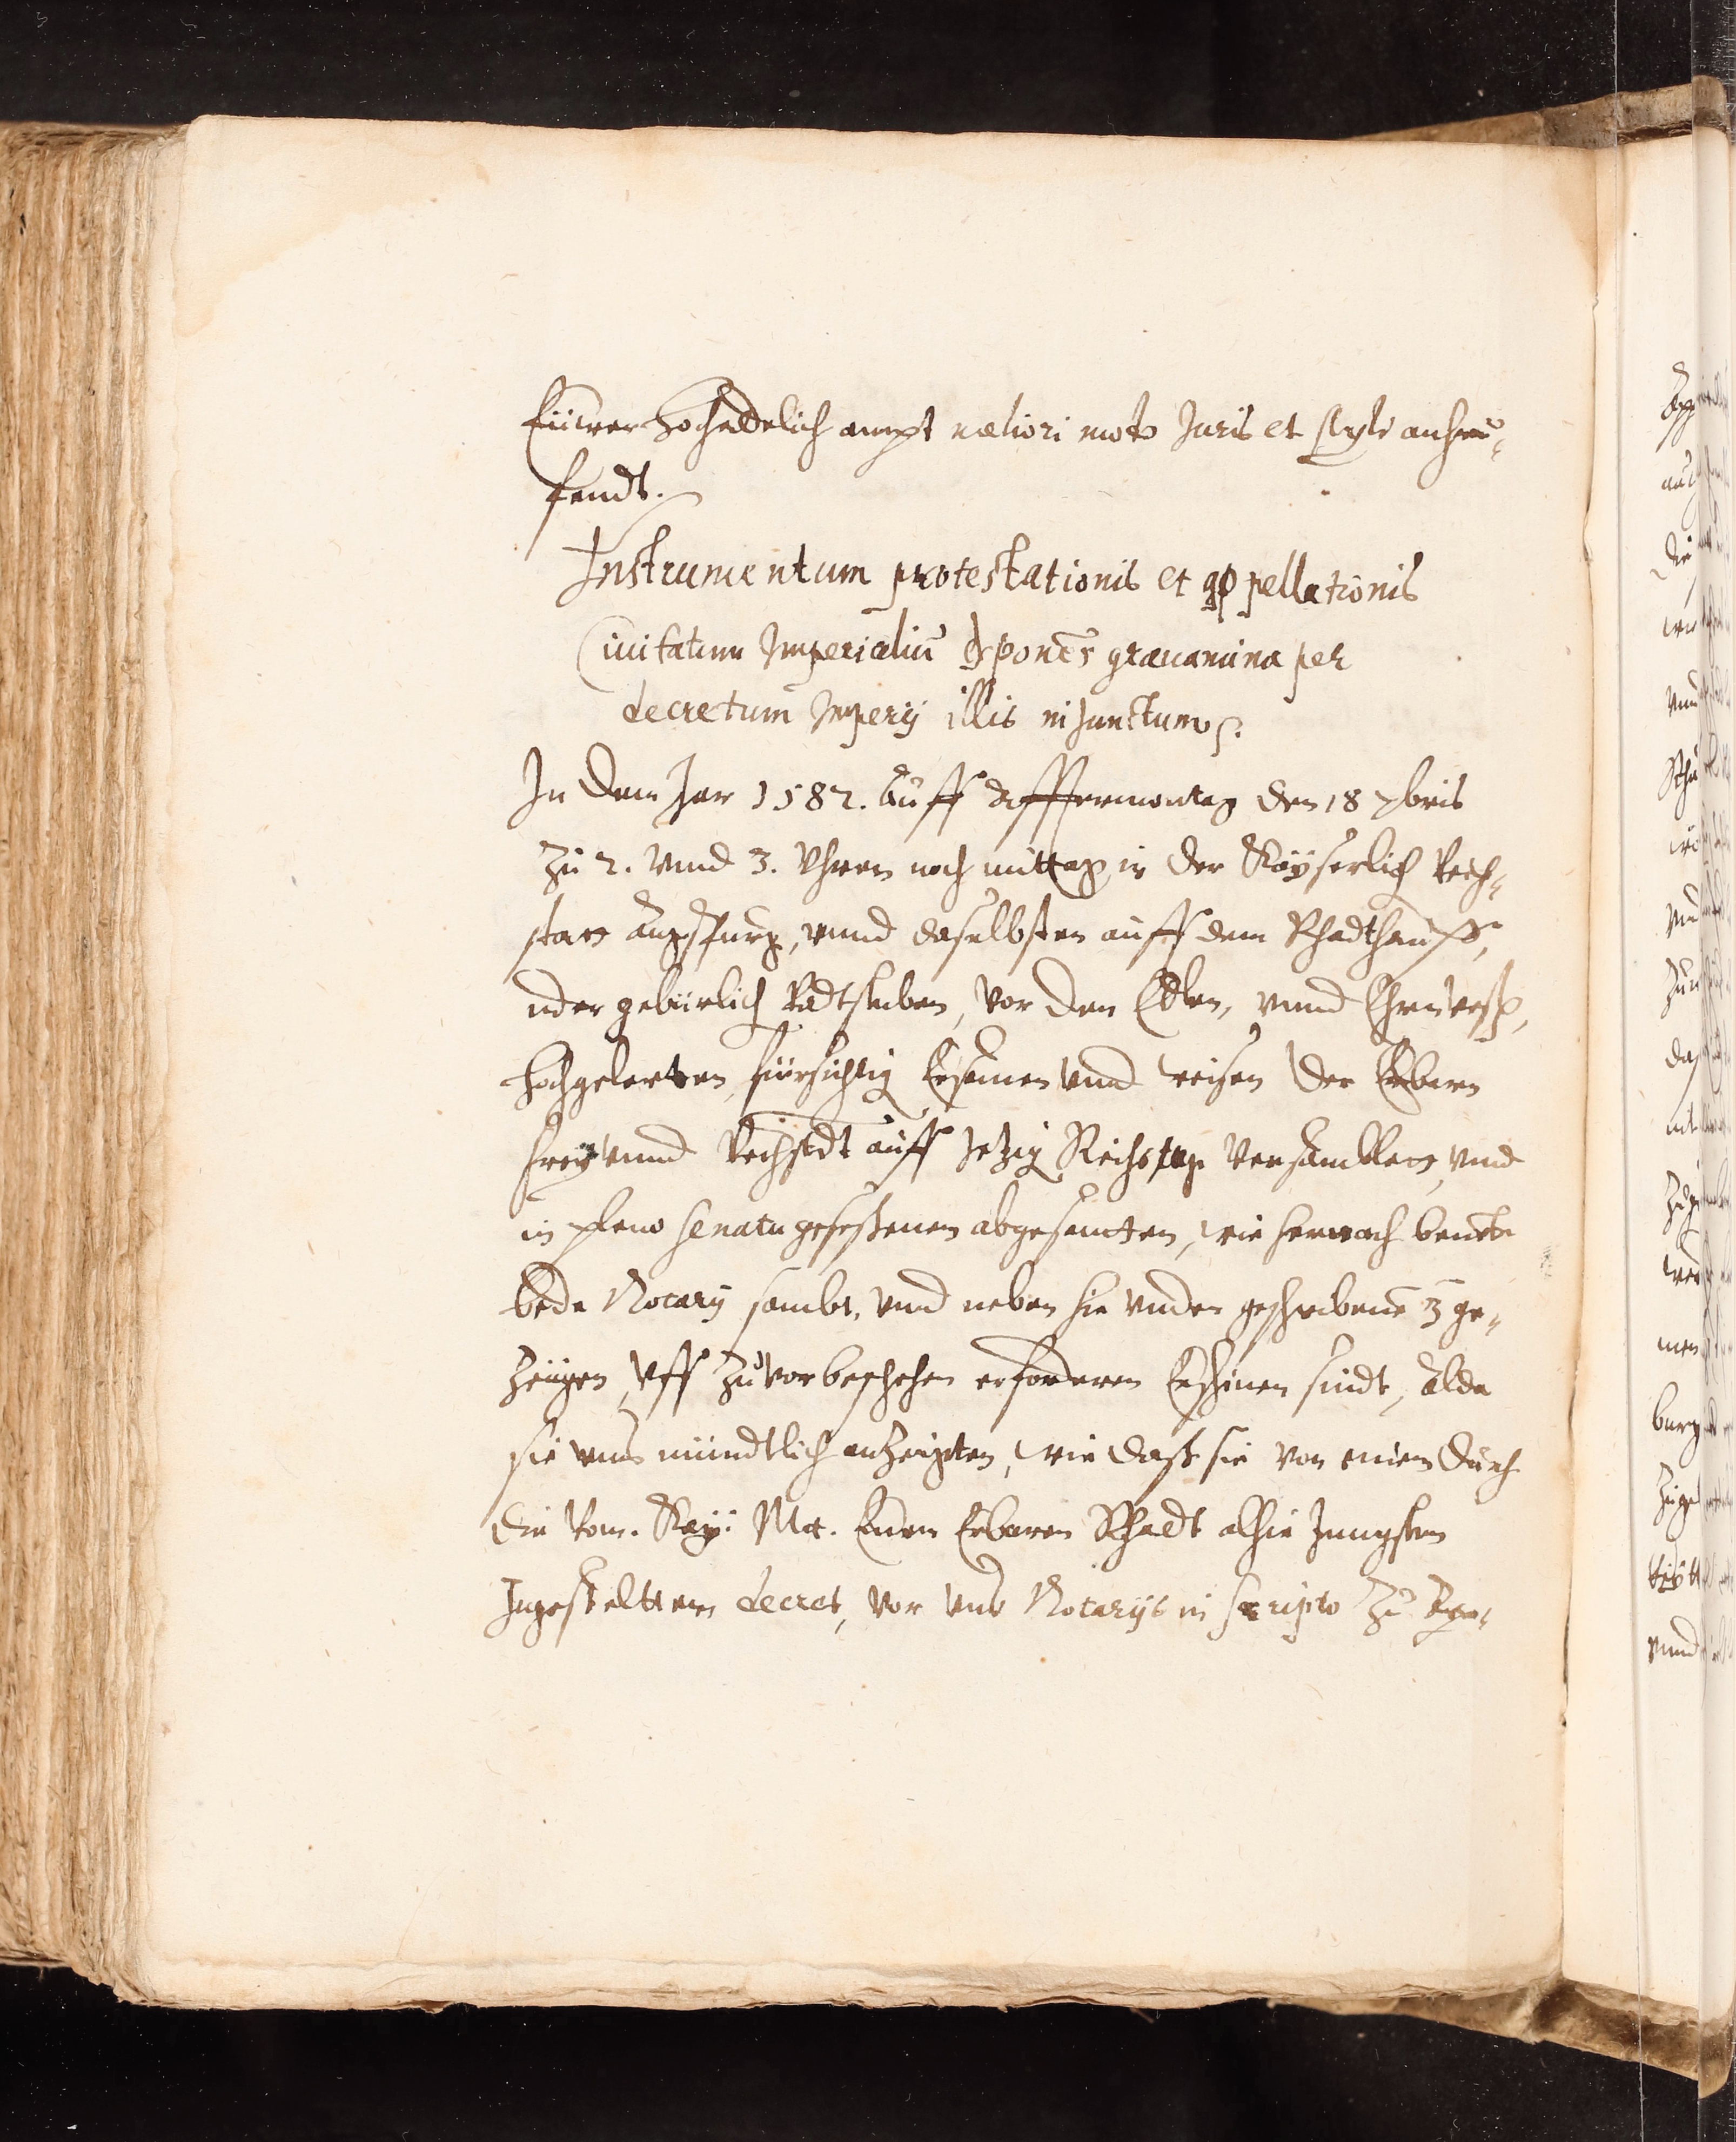 Eüwer hochadelich ampt meliori modo Juris et styli anheu¬
fendt.
Instrumentum protestationis et appellationis
Ciuitatum Imperialiũ exponẽs grauamina per
decretum Imperij illis iniunctum
In dem Jar 1582. Auff Afftermontag den 18 7bris
Zu 2. vnnd 3. Vhren noch mittag in der Kayserlich Reich¬
statt Augspurg, vnnd daselbsten auff dem Rhadthauß,
in der gebürlich Radtstuben, Vor den Edlen, vnnd Ehrnvest,
hochgelerten fürsichtig Ersamen vnd weisen der Erbarn
frey vnnd Reichstedt auff Jetzig Reichstag Versamblett, vnd
in pleno senatu gesessenen abgesanten, wie hernach benente
bede Notarij sambt, vnd neben hie vnden geschribene 3 ge¬
Zeügen vff Zuvor beschehen erforderen Erschinen sindt, Alda
sie vns mündtlich anzeigten, wie daß sie von einem durch
die Rom. Kay: Mt. Einem Erbaren Rhadt alhie Jungsten
Zugestelttem decret, vor vns Notarijs in scripto Zu Appe¬